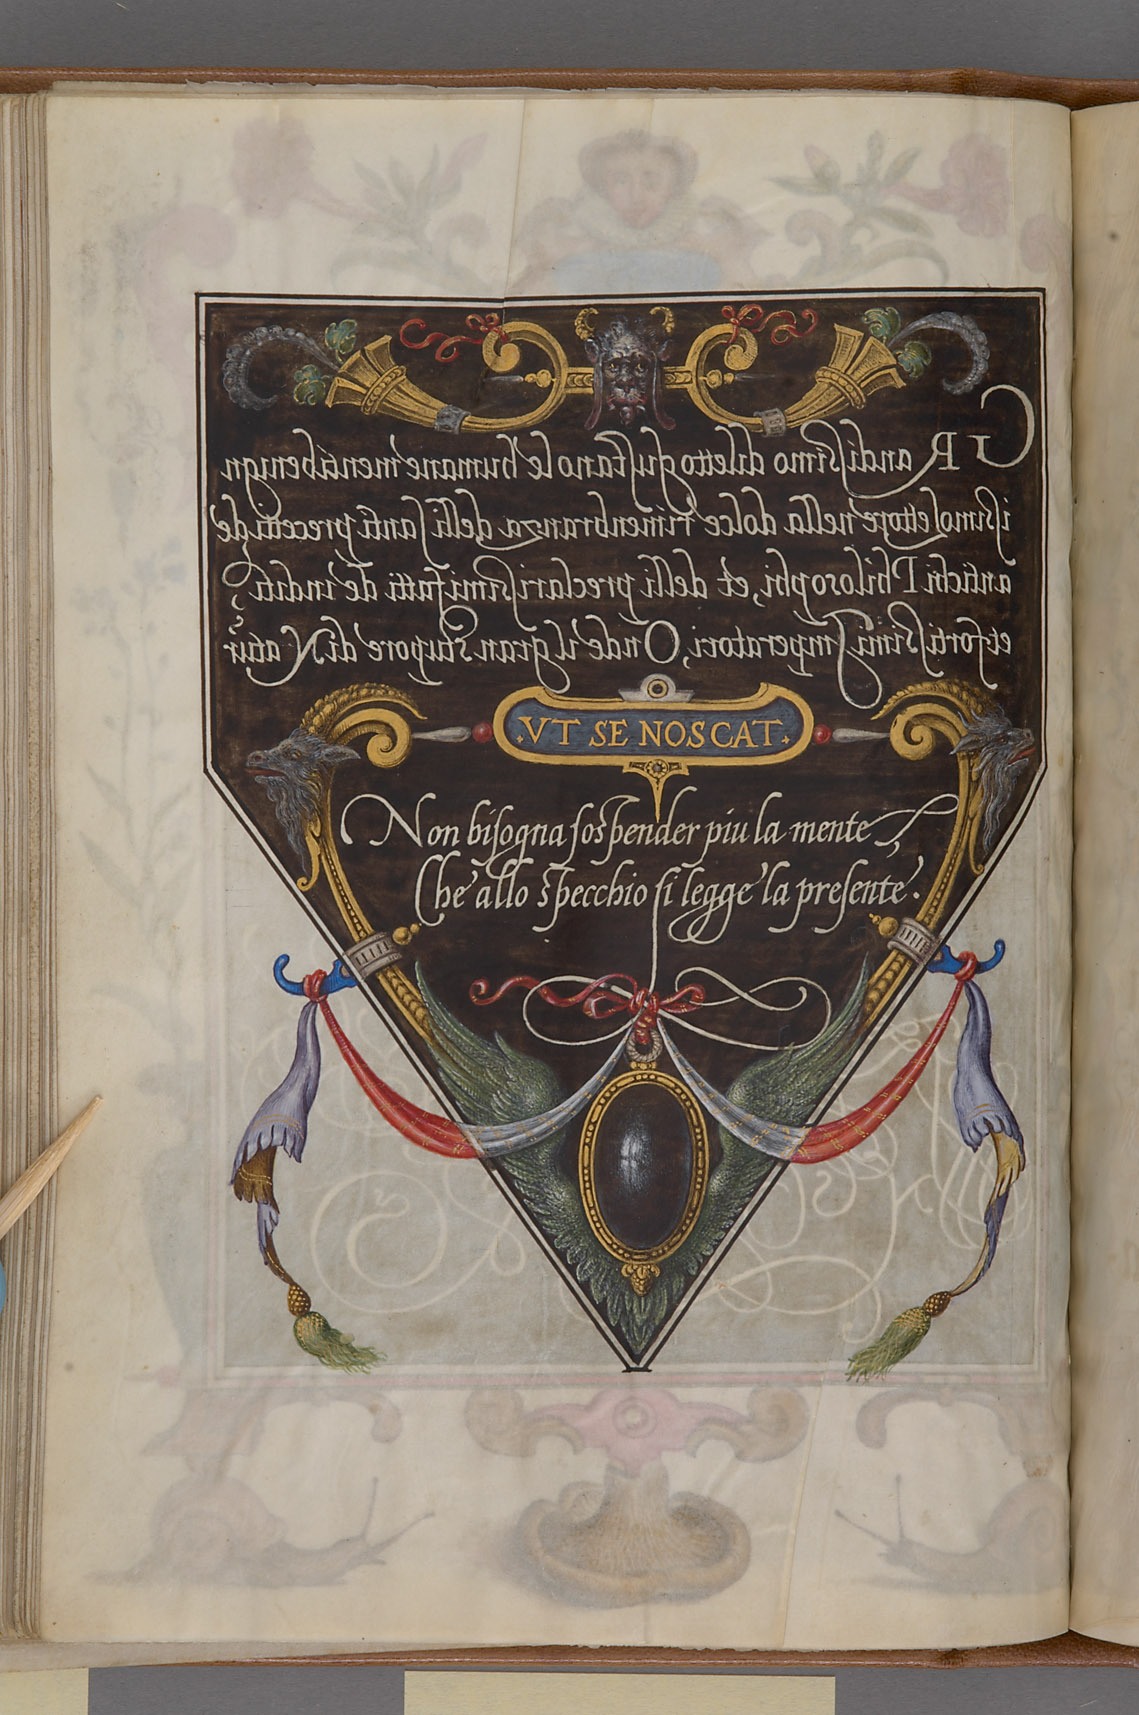 GRandissimo diletto gustano le humane menti benign
issimo lettore nella dolce rimenbranza delli santi precetti de
antichi Philosophi, et delli preclarissimi fatti de inditi
et fortissimi Imperatori, Onde il gran stupore di Natur
·VT SE NOSCAT·
Non bisogna sospender piu la mente
Che allo specchio si legge la presente.